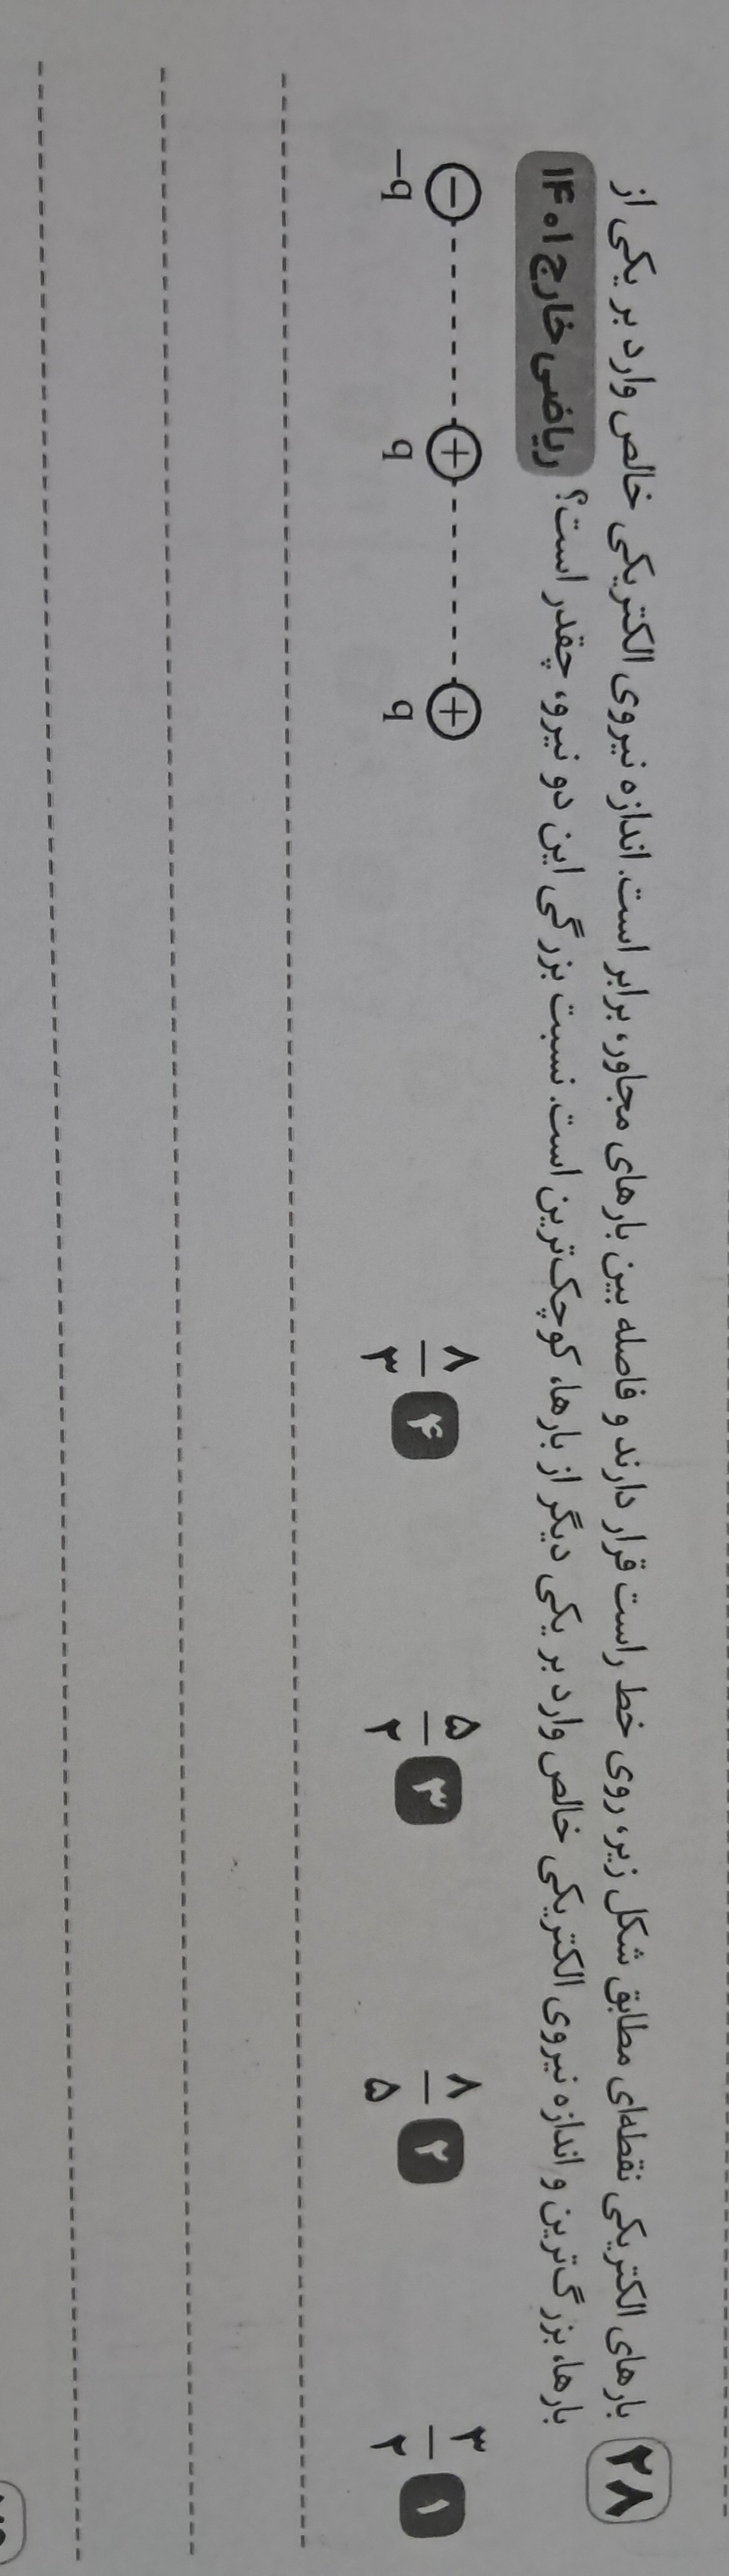 ۲۸ بارهای الکتریکی نقطه‌ای مطابق شکل زیر، روی خط راست قرار دارند و فاصله بین بارهای مجاور، برابر است. اندازه نیروی الکتریکی خالص وارد بر یکی از
بارها، بزرگ‌ترین و اندازه نیروی الکتریکی خالص وارد بر یکی دیگر از بارها، کوچک‌ترین است. نسبت بزرگی این دو نیرو، چقدر است؟ ریاضی خارج ۱۴۰۱
۱ ۳/۲ ۲ ۸/۵ ۳ ۵/۲ ۴ ۸/۳
− + +
−q q q